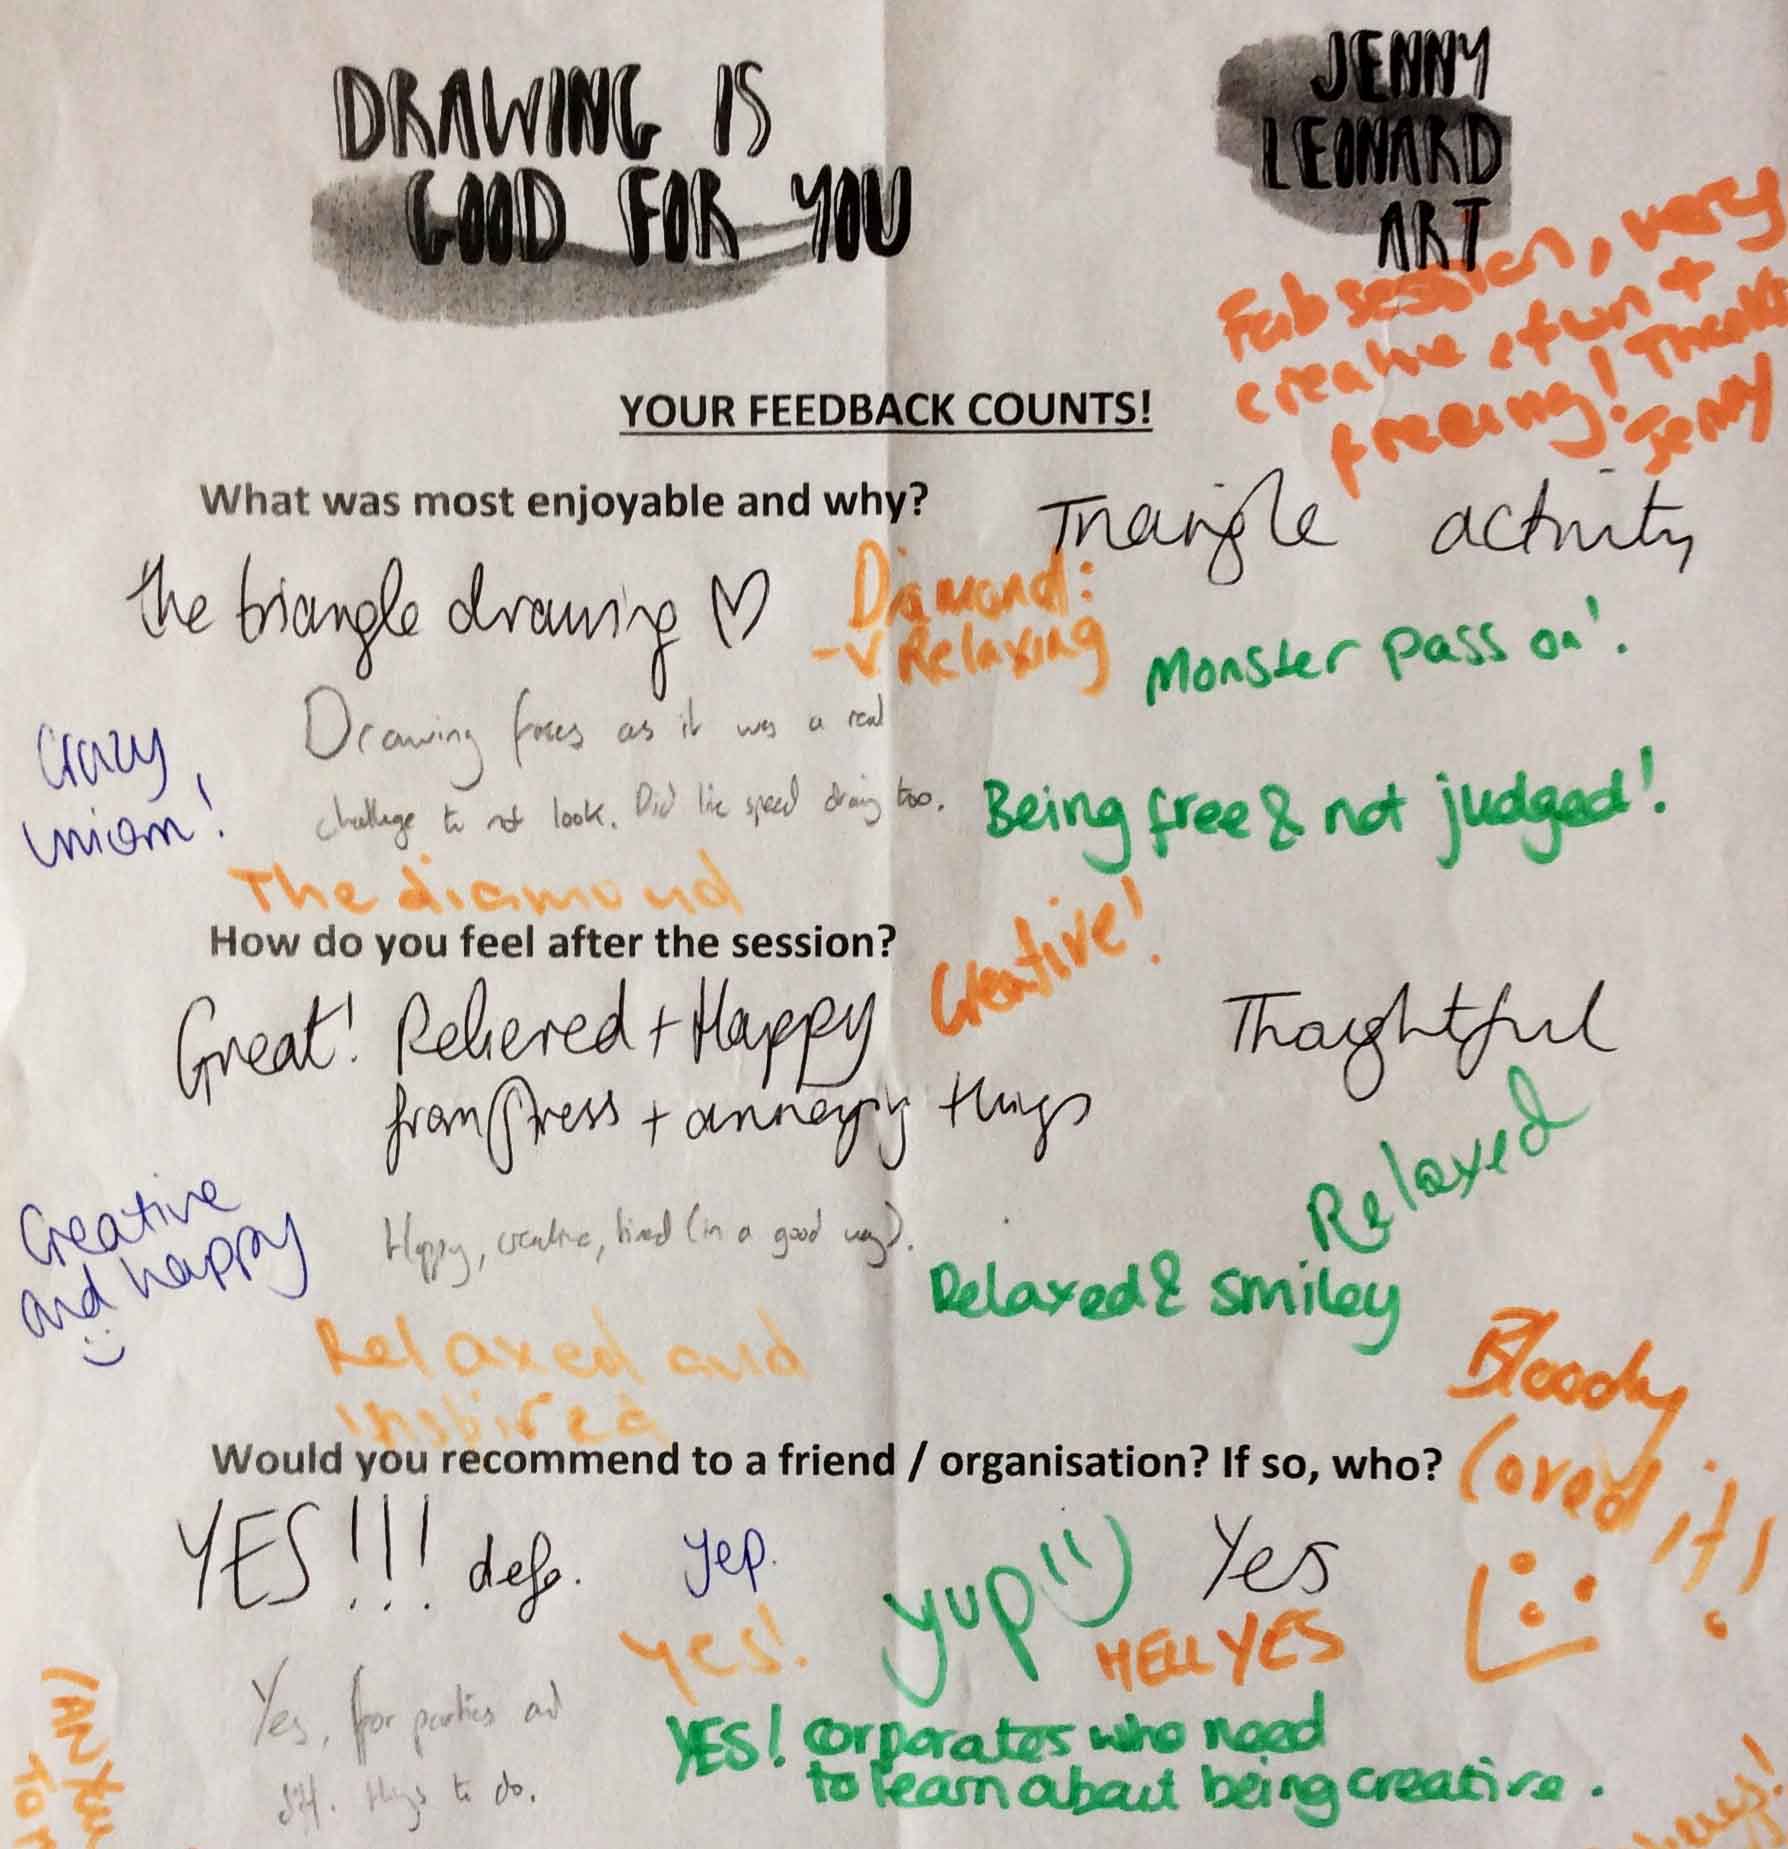 DRAWING IS
GOOD FOR YOU
JENNY
LEONARD
ART
Fab session, very
creative + fun +
freeing! Thanks
Jenny
YOUR FEEDBACK COUNTS!
What was most enjoyable and why?
Triangle activity
the triangle drawing ♡
Diamond:
Relaxing
Monster pass on!
Crazy
Drawing faces as it was a real
challenge to not look. Did like speed drawing too.
Being free & not judged!
The diamond
How do you feel after the session?
Creative!
Great! Relieved + Happy
from stress + annoying things
Thoughtful
Relaxed
Creative
and happy
Happy, creative, tired (in a good way).
Relaxed & smiley
Relaxed and
inspired
Would you recommend to a friend / organisation? If so, who?
Bloody
loved it!
YES!!! defo.
yep.
yup!!
Yes
yes!
HELL YES
Yes, for parties and
things to do.
YES! corporates who need
to learn about being creative.